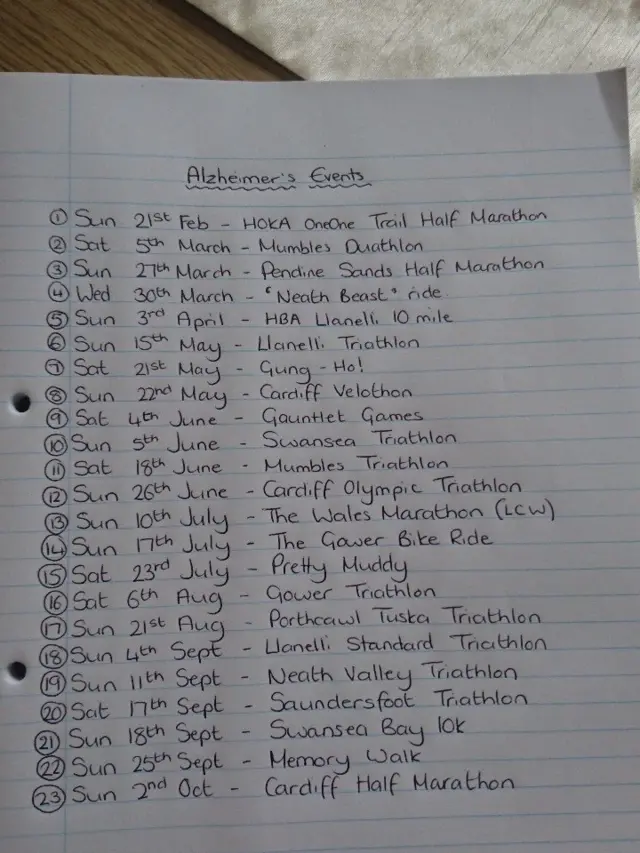 Alzheimer's Events
① Sun 21st Feb - HOKA OneOne Trail Half Marathon
② Sat 5th March - Mumbles Duathlon
③ Sun 27th March - Pendine Sands Half Marathon
④ Wed 30th March - "Neath Beast" ride.
⑤ Sun 3rd April - HBA Llanelli 10 mile
⑥ Sun 15th May - Llanelli Triathlon
⑦ Sat 21st May - Gung-Ho!
⑧ Sun 22nd May - Cardiff Velothon
⑨ Sat 4th June - Gauntlet Games
⑩ Sun 5th June - Swansea Triathlon
⑪ Sat 18th June - Mumbles Triathlon
⑫ Sun 26th June - Cardiff Olympic Triathlon
⑬ Sun 10th July - The Wales Marathon (LCW)
⑭ Sun 17th July - The Gower Bike Ride
⑮ Sat 23rd July - Pretty Muddy
⑯ Sat 6th Aug - Gower Triathlon
⑰ Sun 21st Aug - Porthcawl Tuska Triathlon
⑱ Sun 4th Sept - Llanelli Standard Triathlon
⑲ Sun 11th Sept - Neath Valley Triathlon
⑳ Sat 17th Sept - Saundersfoot Triathlon
㉑ Sun 18th Sept - Swansea Bay 10k
㉒ Sun 25th Sept - Memory Walk
㉓ Sun 2nd Oct - Cardiff Half Marathon